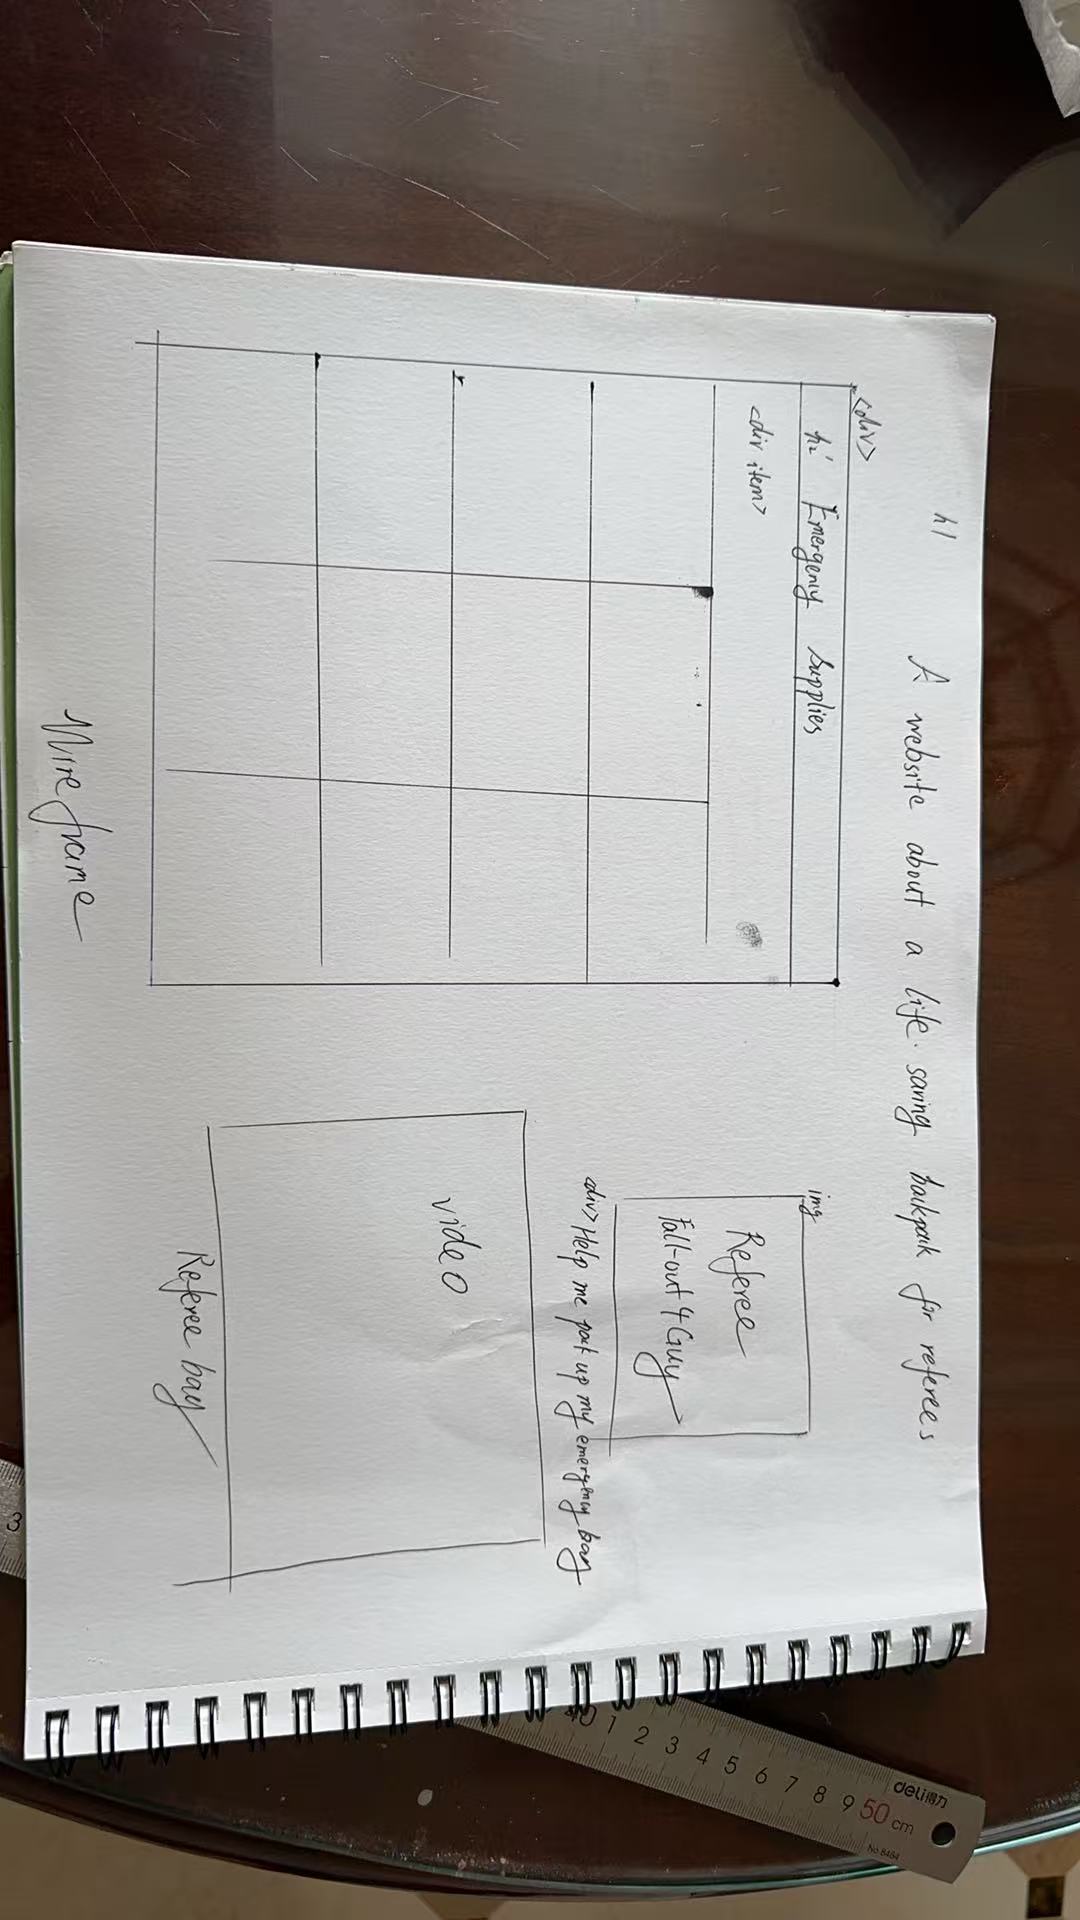 h1
A website about a life-saving backpack for referees
<div>
h2' Emergency Supplies
<div item>
img
Referee
Fall-out 4 Guy
<div> Help me pack up my emergency bag
video
Referee bag
Wireframe
3
40 1 2 3 4 5 6 7 8 9 50 cm
deli得力
No.8464